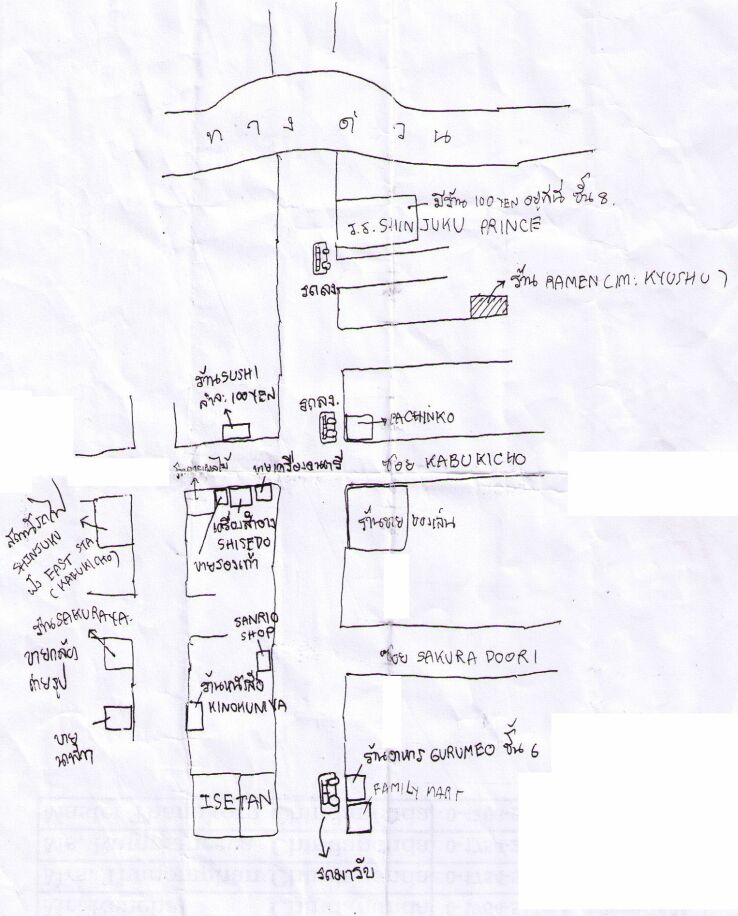 ทางด่วน
มีร้าน 100 YEN อยู่ที่นี่ ชั้น 8.
ร.ร. SHINJUKU PRINCE
รถลง
ร้าน RAMEN (JM: KYUSHU)
ร้าน SUSHI
คำละ 100 YEN
รถลง.
PACHINKO
ซอย KABUKICHO
ขายเครื่องดนตรี
เครื่องสำอาง
SHISEDO
ขายรองเท้า
ร้านขาย ของเล่น
สถานีรถไฟ
SHINJUKU
ฝั่ง EAST STA
(KABUKICHO)
ร้าน SAKURAYA.
ขายกล้อง
ถ่ายรูป
SANRIO
SHOP
ซอย SAKURA DOORI
ร้านหนังสือ
KINOKUNIYA
ขาย
นาฬิกา
ร้านอาหาร GURUMEO ชั้น 6
FAMILY MART
ISETAN
รถมารับ